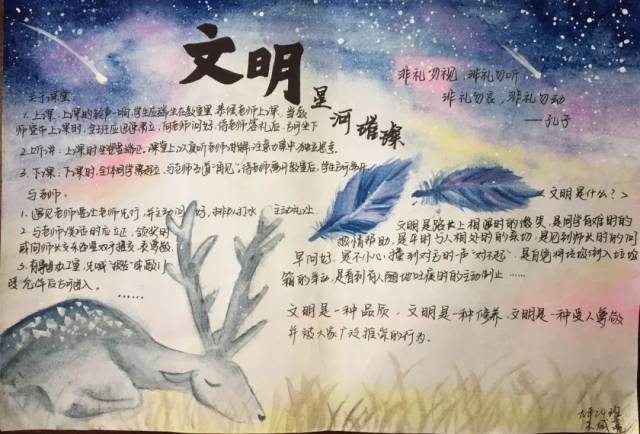 文明
星河璀璨
非礼勿视、非礼勿听、
非礼勿言、非礼勿动
——孔子
关于课堂:
1. 上课:上课的铃声一响,学生应端坐在教室里,恭候老师上课,当教
师宣布上课时,全班应迅速肃立,向老师问好,待老师答礼后,方可坐下
2. 听讲:上课时坐姿端正。课堂上认真听老师讲解,注意力集中,独立思考。
3. 下课:下课时,全体同学需起立,与老师互道"再见",待老师离开教室后,学生方可离开
与老师:
1. 遇见老师要让老师先行,并主动问好,排队打水 主动礼让
2. 与老师说话时应立正,领奖时
或向师长交东西要双手接交,表尊敬
3. 有事进办公室,先喊"报告"或敲门
经允许后方可进入。
……
《文明是什么?》
文明是路上相遇时的微笑,是同学有难时的
热情帮助,是平时与人相处时的亲切,是见到师长时的问
早问好,是不小心撞到对方时一声"对不起",是自觉将垃圾扔入垃圾
箱的举动,是看到有人随地吐痰时的主动制止……
文明是一种品质,文明是一种修养,文明是一种受人尊敬
并被大家广泛推崇的行为。